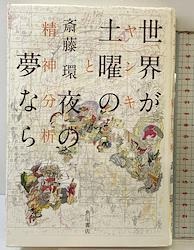 世界が
土曜の
夜の
夢なら
ヤンキーと
精神分析
斎藤環
角川書店